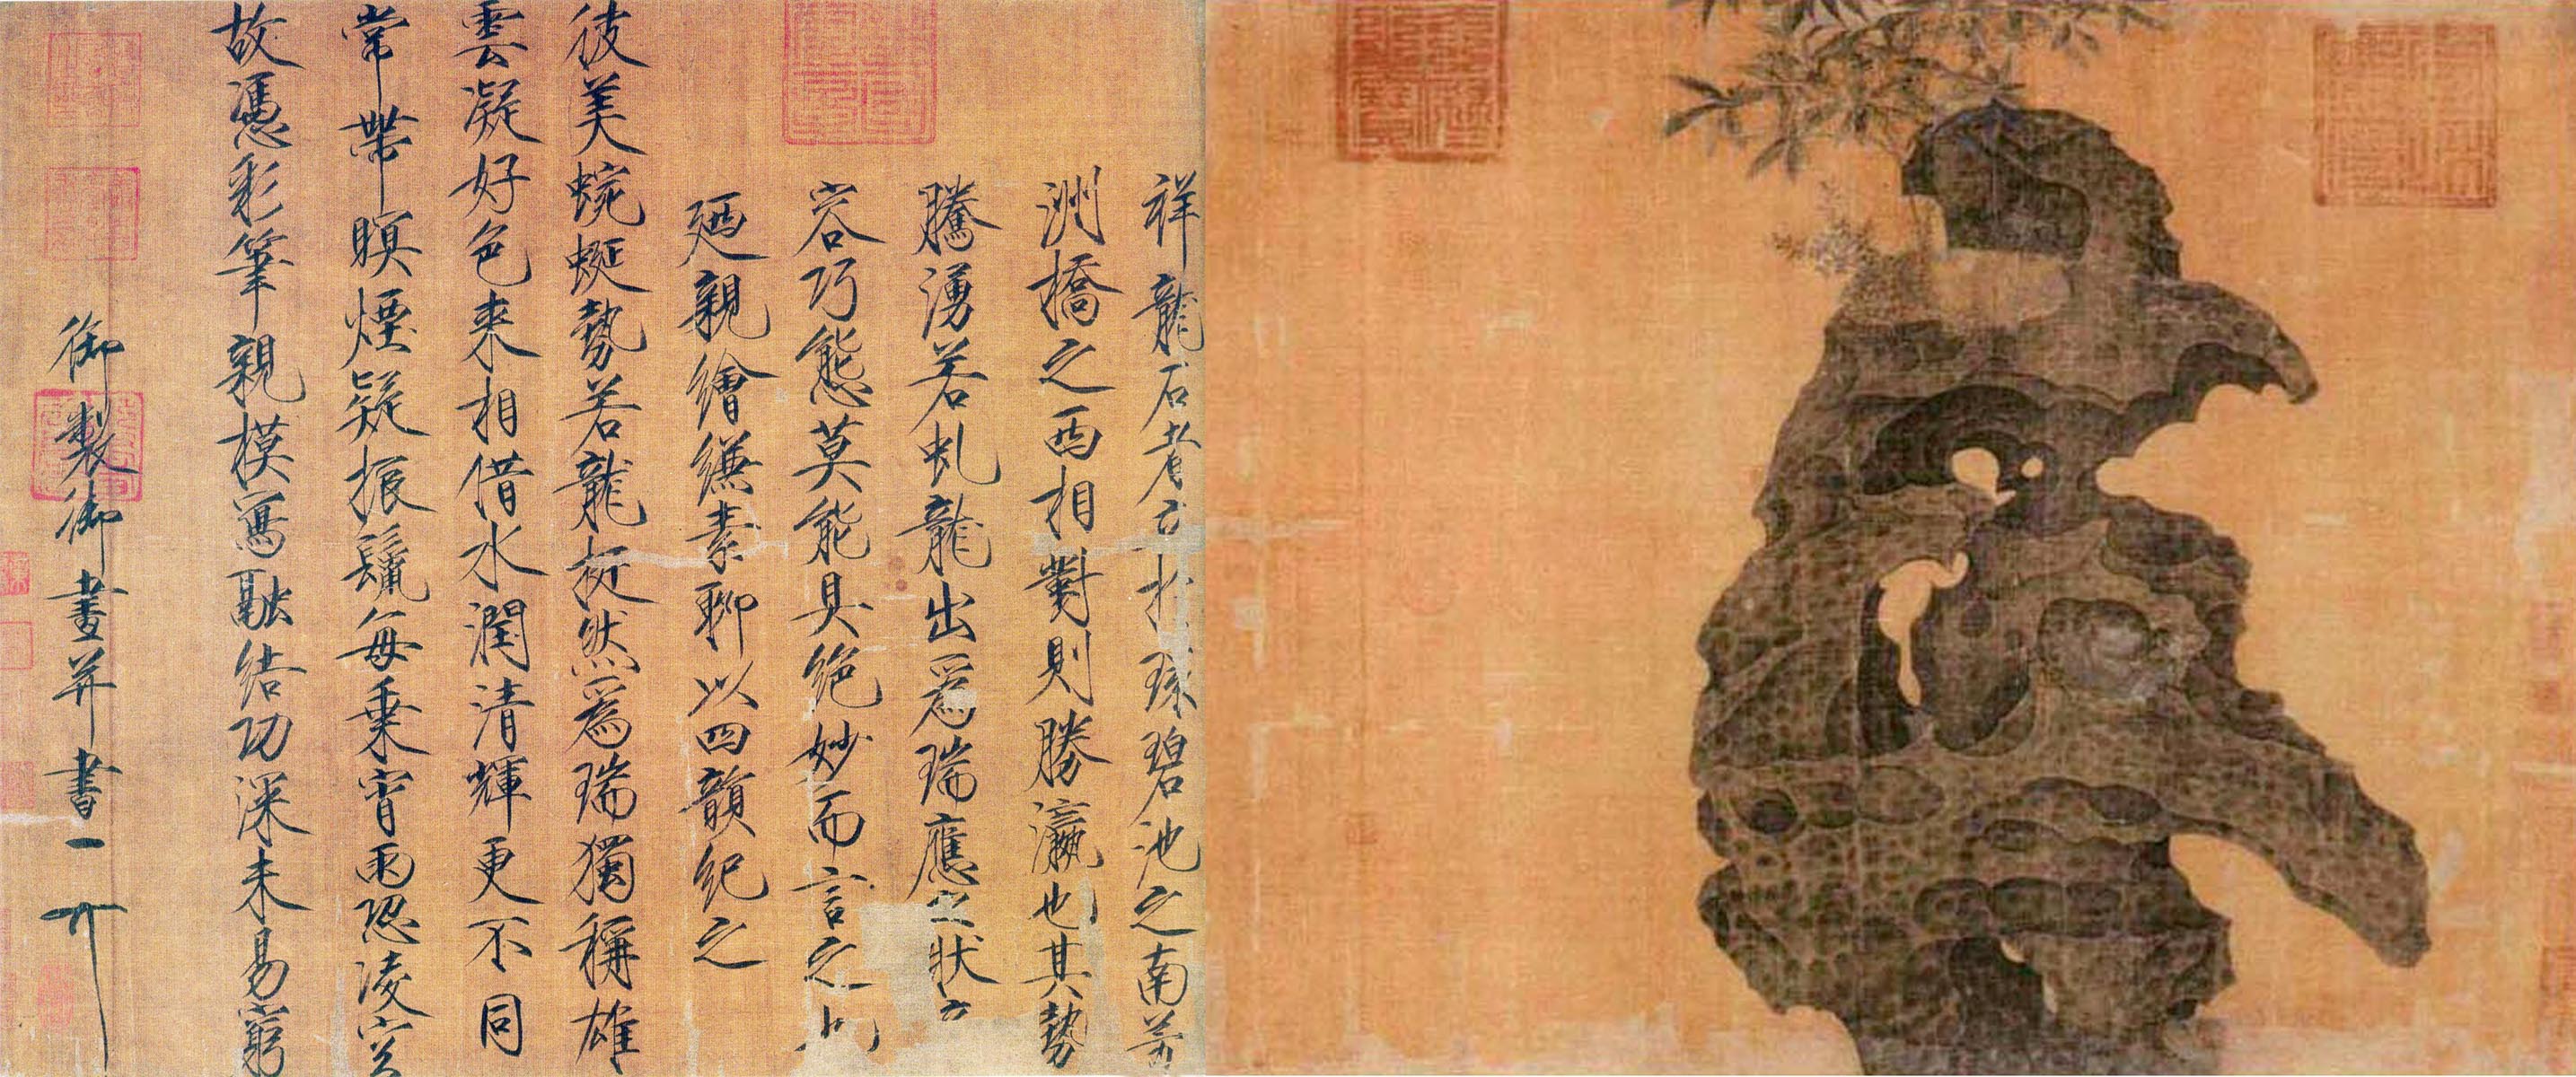 祥龍石者環碧池之南芳
洲橋之西相對則勝瀛也其勢
騰湧若虬龍出爲瑞應之狀
容巧態莫能具絕妙而言之也
廼親繪縑素聊以四韻紀之
彼美蜿蜒勢若龍挺然爲瑞獨稱雄
雲凝好色來相借水潤清輝更不同
常帶暝煙疑振鬣每乘宵雨恐凌空
故憑彩筆親模寫融結功深未易窮
御製御畫并書